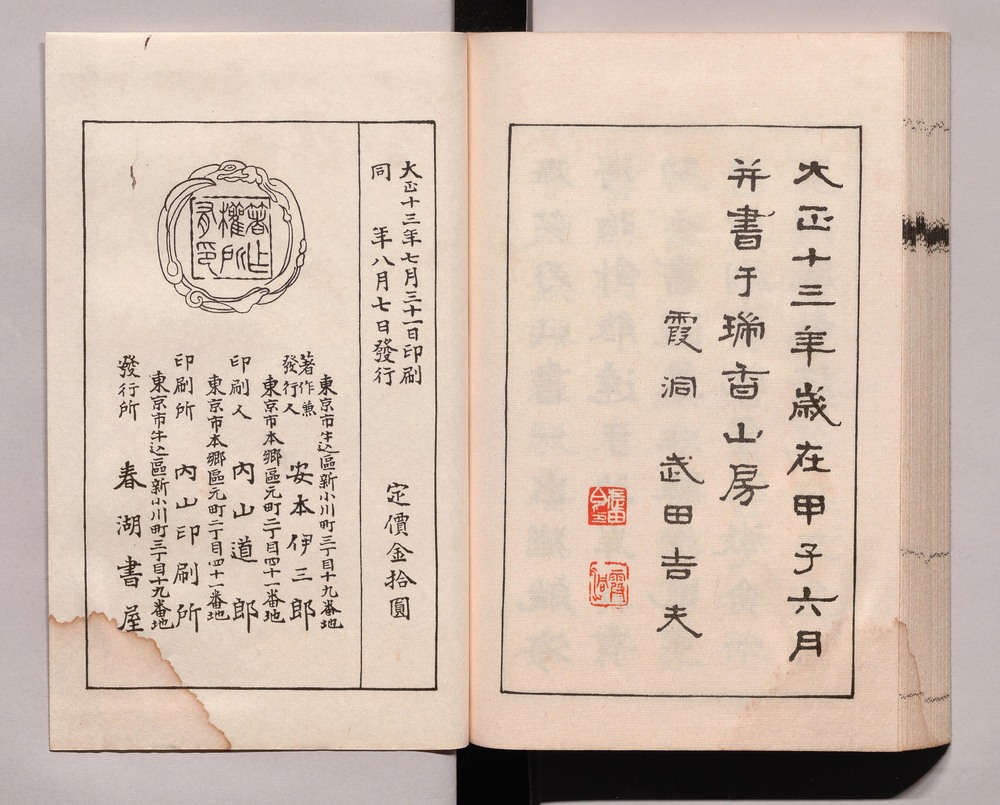 大正十三年歳在甲子六月
并書于瑞香山房
霞洞 武田吉夫
大正十三年七月三十一日印刷
同 年八月七日發行
定價金拾圓
著作權所有
東京市牛込區新小川町三丁目十九番地
著作兼發行人 安本伊三郎
東京市本郷區元町二丁目四十一番地
印刷人 內山道郎
東京市本郷區元町二丁目四十一番地
印刷所 內山印刷所
東京市牛込區新小川町三丁目十九番地
發行所 春湖書屋